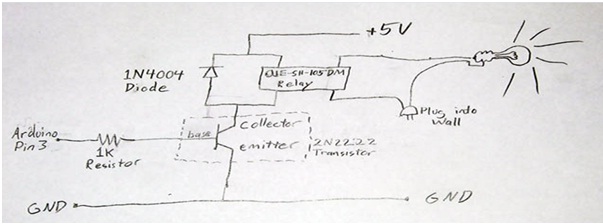 +5V
1N4004
Diode
OJE-SH-105DM
Relay
Plug into
Wall
Arduino
Pin 3
1K
Resistor
base
collector
emitter
2N2222
Transistor
GND
GND